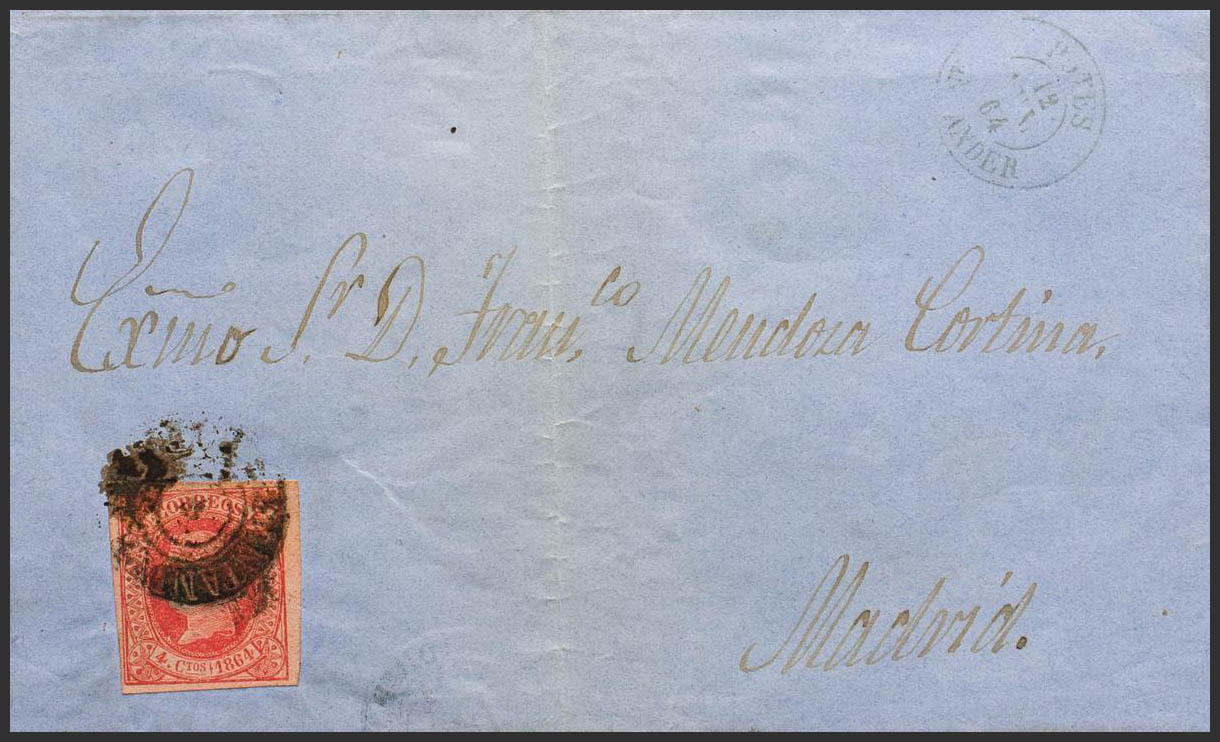 POTES
12
64
ANDER
Exmo Sr. D. Fran.co Mendoza Cortina.
CORREOS
4. CTOS 1864
Madrid.